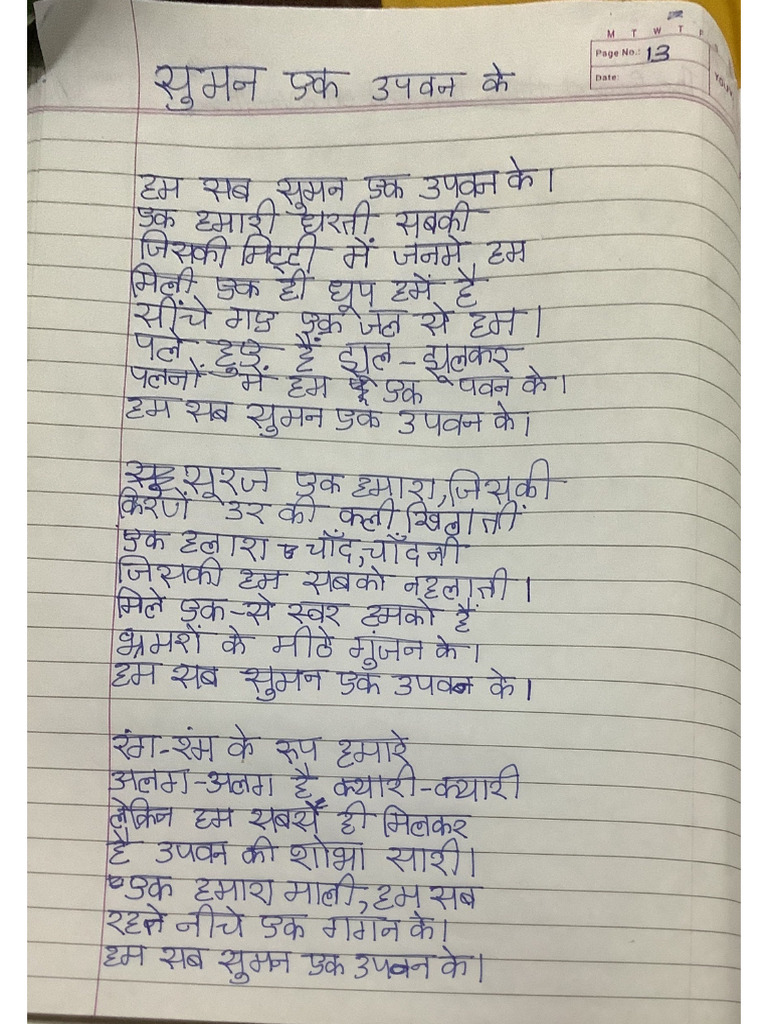 M T W T F S
Page No.: 13
Date:
YOUVA
सुमन एक उपवन के
हम सब सुमन एक उपवन के।
एक हमारी धरती सबकी
जिसकी मिट्टी में जनमे हम
मिली एक ही धूप हमें है
सींचे गए एक जल से हम।
पले हुए हैं झूल-झूलकर
पलनों में हम एक पवन के।
हम सब सुमन एक उपवन के।
सूरज एक हमारा, जिसकी
किरणें उर की कली खिलातीं
एक हलारा चाँद, चाँदनी
जिसकी हम सबको नहलाती।
मिले एक-से स्वर हमको हैं
भ्रमरों के मीठे गुंजन के।
हम सब सुमन एक उपवन के।
रंग-रंम के रूप हमारे
अलग-अलग है क्यारी-क्यारी
लेकिन हम सबसे ही मिलकर
है उपवन की शोभा सारी।
एक हमारा माली, हम सब
रहते नीचे एक गगन के।
हम सब सुमन एक उपवन के।